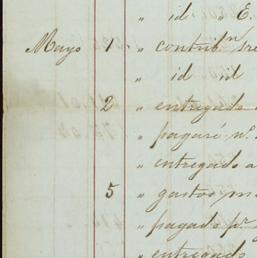 " id " E.
Mayo 1 " contribn
" id id
2 " entregado
" pagaré no.
" entregado a
5 " gastos
" pagado pr.
" entregado